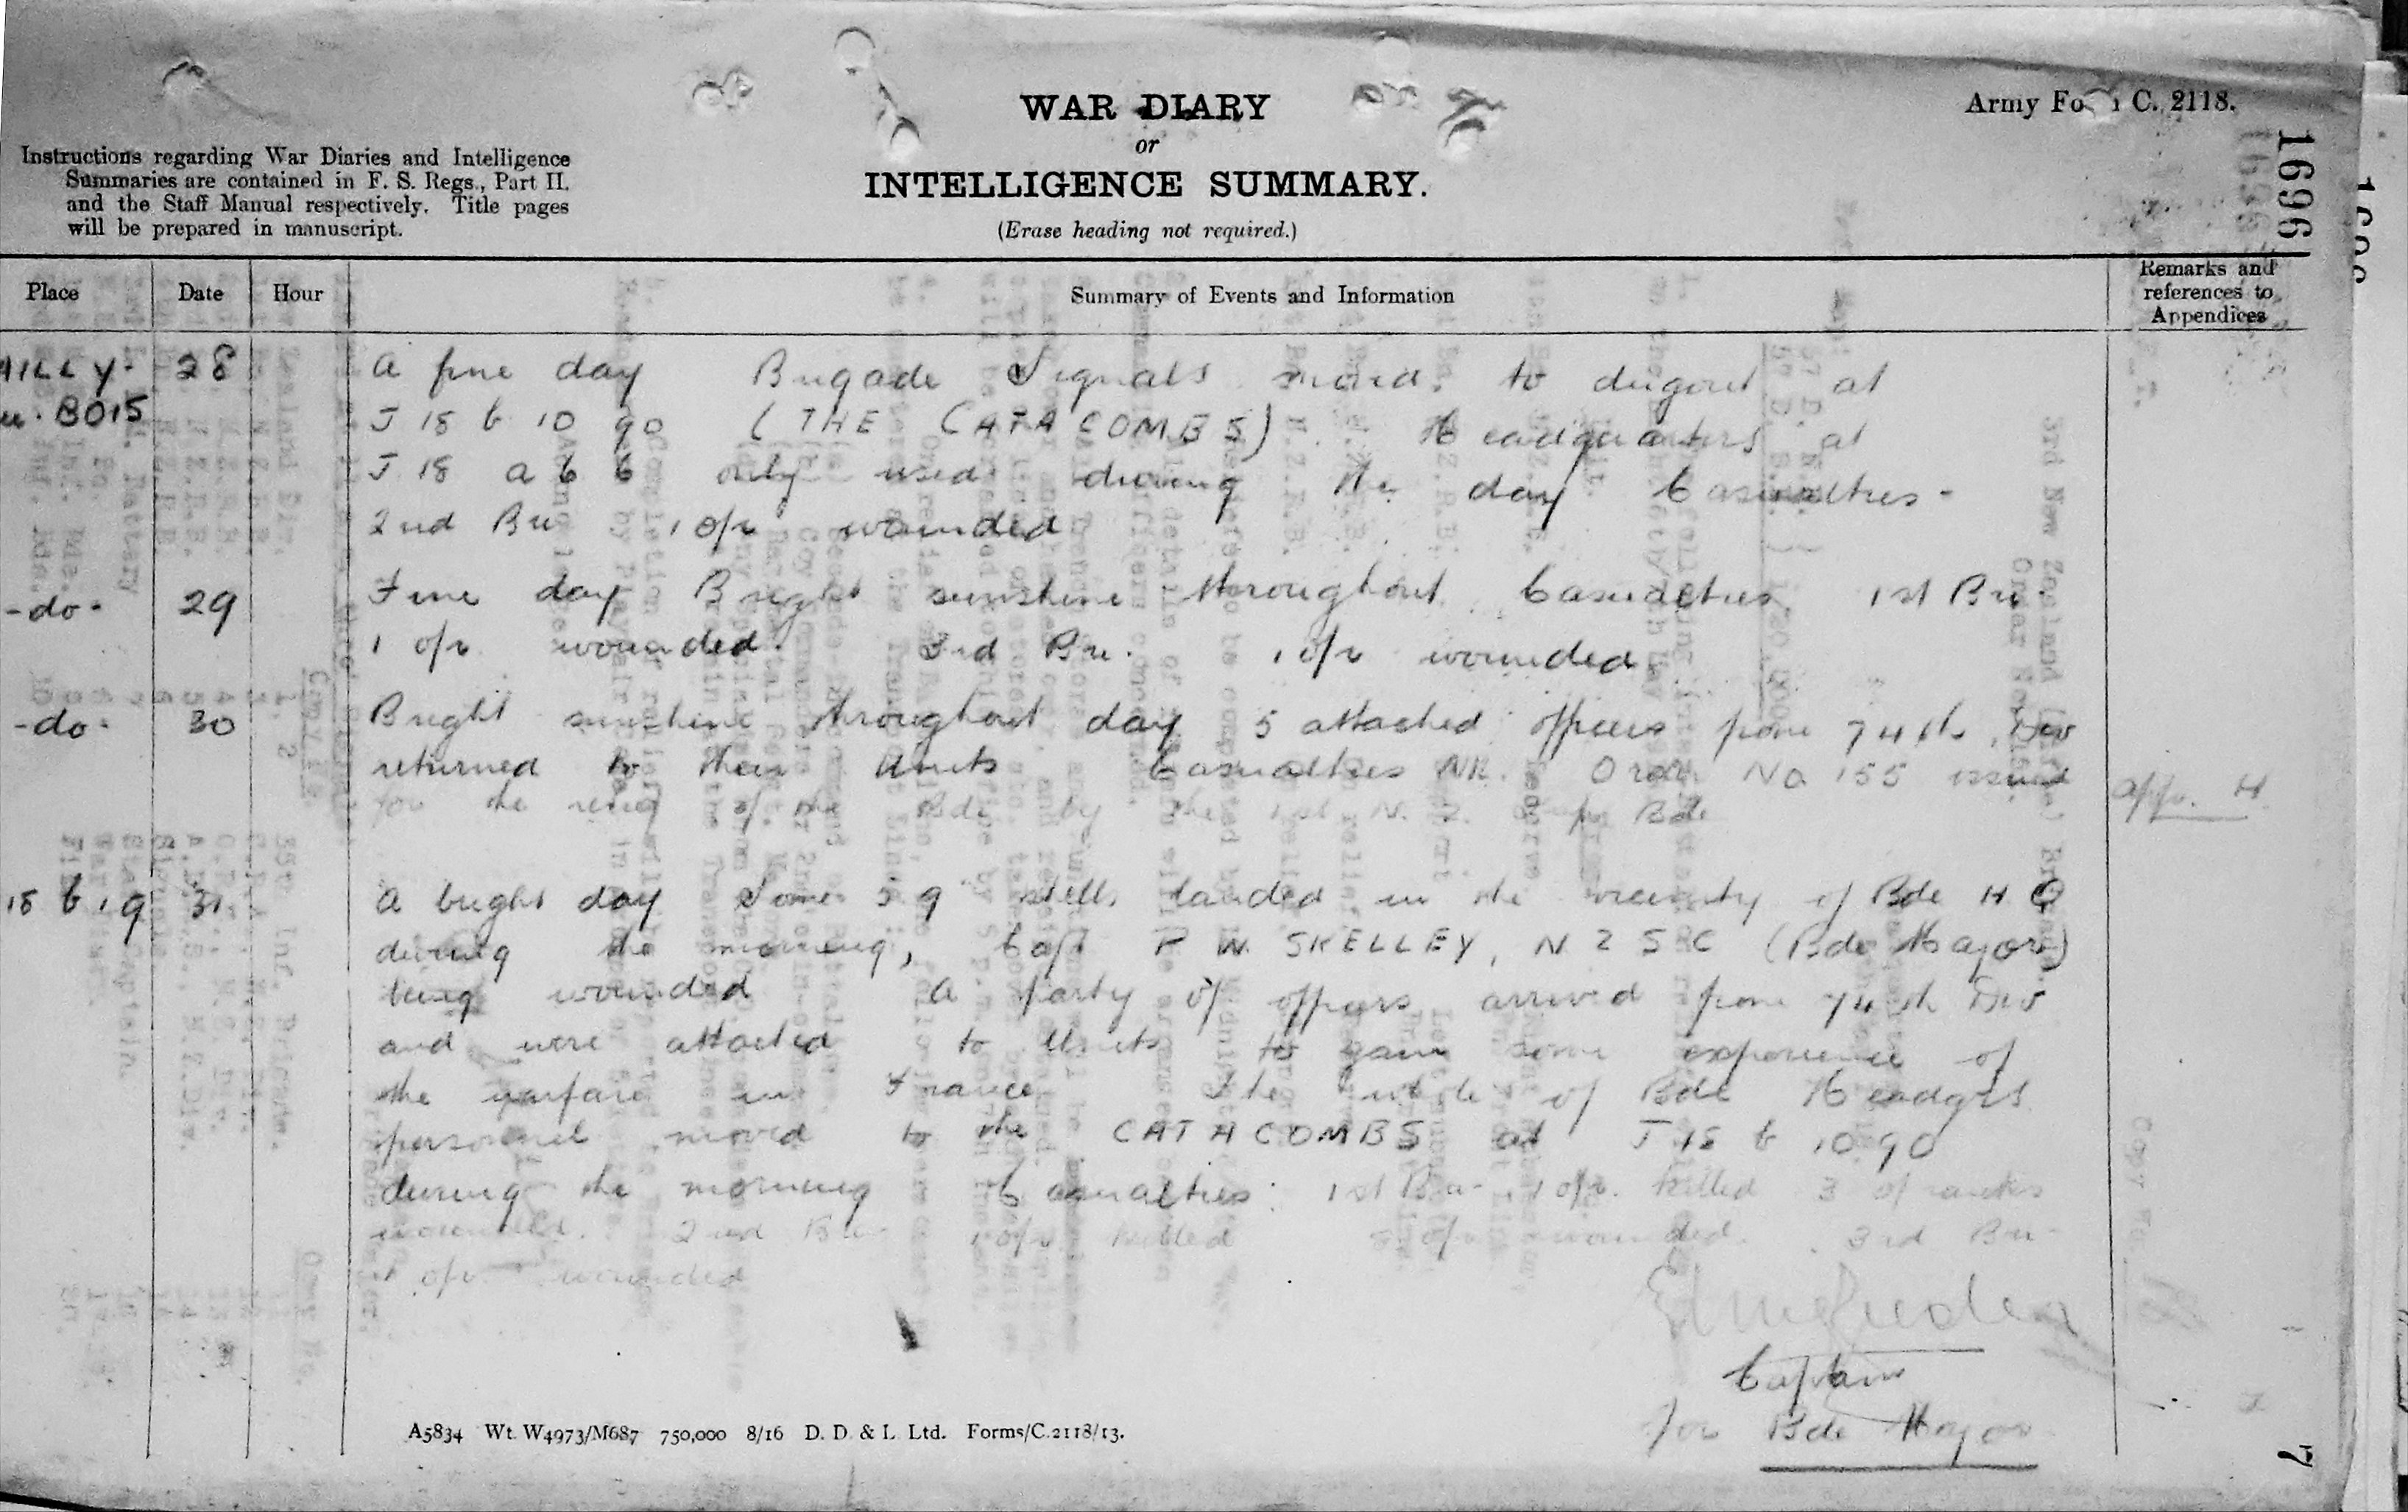 WAR DIARY
or
INTELLIGENCE SUMMARY.
(Erase heading not required.)
Army Fo C. 2118.
Instructions regarding War Diaries and Intelligence
Summaries are contained in F. S. Regs., Part II.
and the Staff Manual respectively. Title pages
will be prepared in manuscript.
1696
Place Date Hour Summary of Events and Information Remarks and references to Appendices
AILLY- 28 A fine day Brigade Signals moved to dugout at
BOIS J 18 b 10 90 (THE CATACOMBS) Headquarters at
J 18 a 6 6 only used during the day Casualties -
2nd Bn 1 o/r wounded
-do- 29 Fine day Bright sunshine throughout Casualties 1st Bn.
1 o/r wounded. 3rd Bn. 1 o/r wounded
-do- 30 Bright sunshine throughout day 5 attached officers from 74th Div
returned to their Units Casualties Nil. Order No 155 issued
for the relief of the Bde by the 1st N. Z. Bde
appx. H
18 b 1 9 31 A bright day Some 5 9" shells landed in the vicinity of Bde H Q
during the morning, Capt W. SKELLEY, N Z S C (Bde Major)
being wounded A party of officers arrived from 74th Div
and were attached to Units to gain some experience of
the warfare in France The whole of Bde Headqrs
personnel moved to the CATACOMBS at J 18 b 10 90
during the morning Casualties: 1st Bn- 1 o/r. killed 3 o/ranks
wounded. 2nd Bn- 1 o/r killed 8 o/r wounded. 3rd Bn-
1 o/r wounded
Captain
for Bde Major
A5834 Wt. W4973/M687 750,000 8/16 D. D. & L. Ltd. Forms/C.2118/13.
7